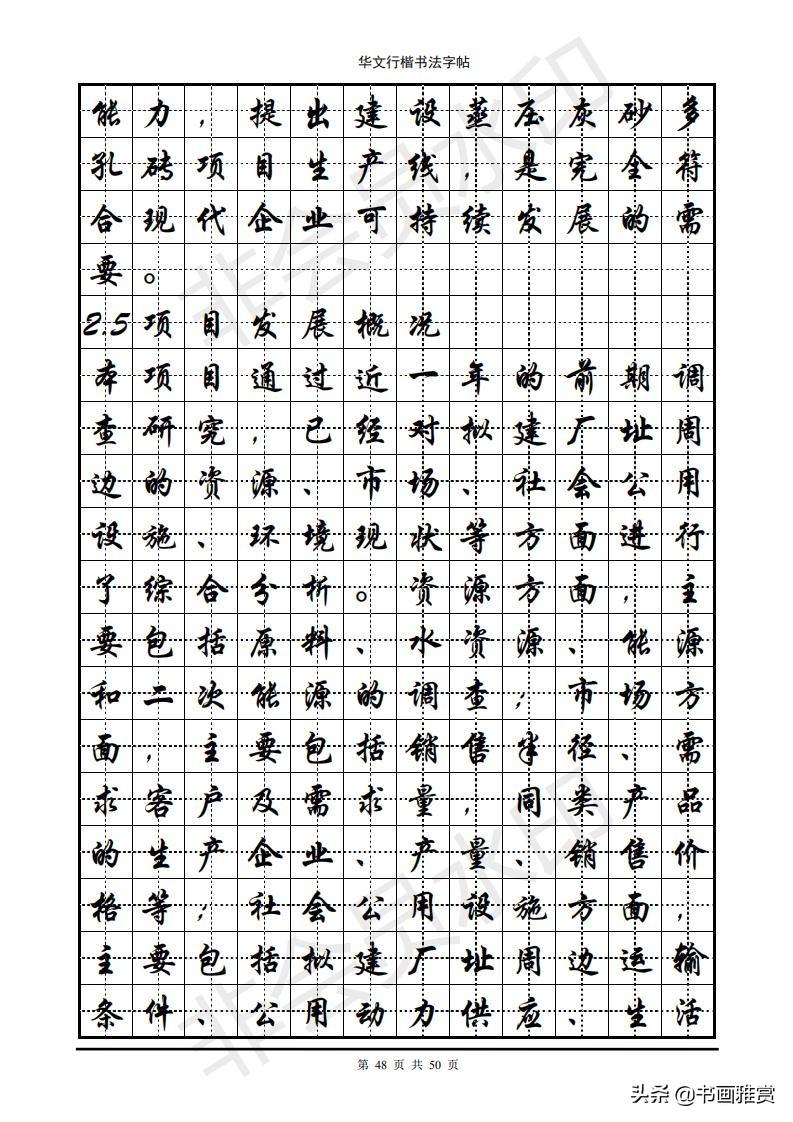 华文行楷书法字帖
能力，提出建设蒸压灰砂多
孔砖项目生产线，是完全符
合现代企业可持续发展的需
要。
2.5项目发展概况
本项目通过近一年的前期调
查研究，已经对拟建厂址周
边的资源、市场、社会公用
设施、环境现状等方面进行
了综合分析。资源方面，主
要包括原料、水资源、能源
和二次能源的调查；市场方
面，主要包括销售半径、需
求客户及需求量，同类产品
的生产企业、产量、销售价
格等；社会公用设施方面，
主要包括拟建厂址周边运输
条件、公用动力供应、生活
第 48 页 共 50 页
非会员水印
非会员水印
头条 @书画雅赏